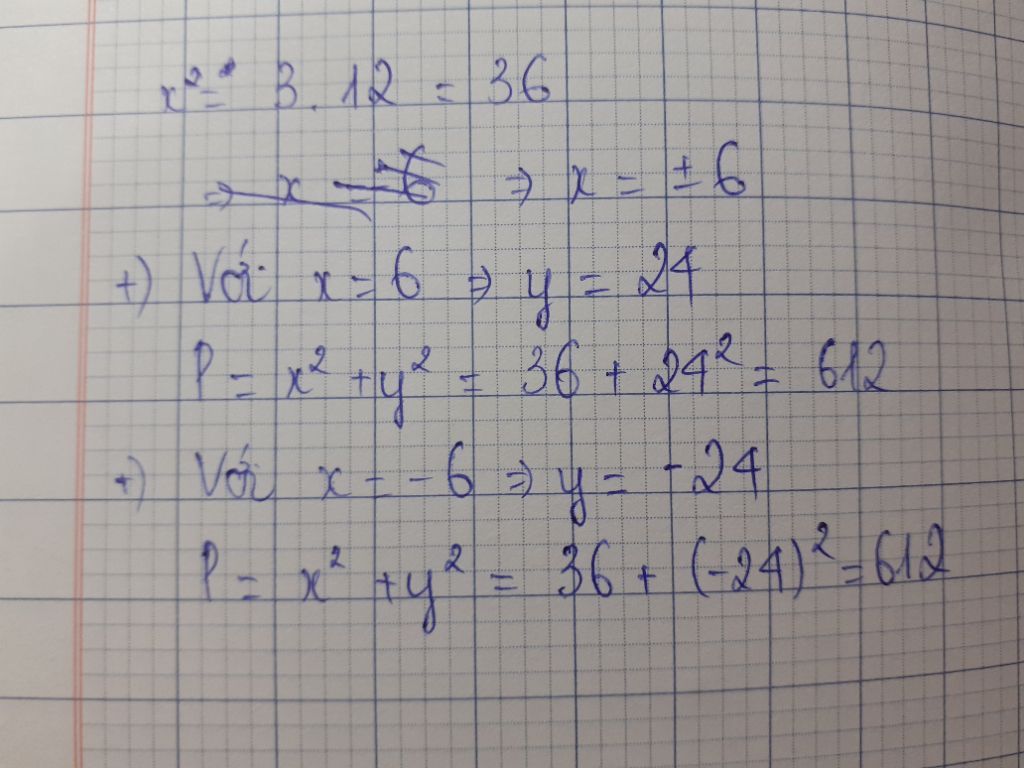 x² = 3 . 12 = 36
⇒ x = 6 ⇒ x = ± 6
+) Với x = 6 ⇒ y = 24
P = x² + y² = 36 + 24² = 612
+) Với x = - 6 ⇒ y = - 24
P = x² + y² = 36 + (-24)² = 612